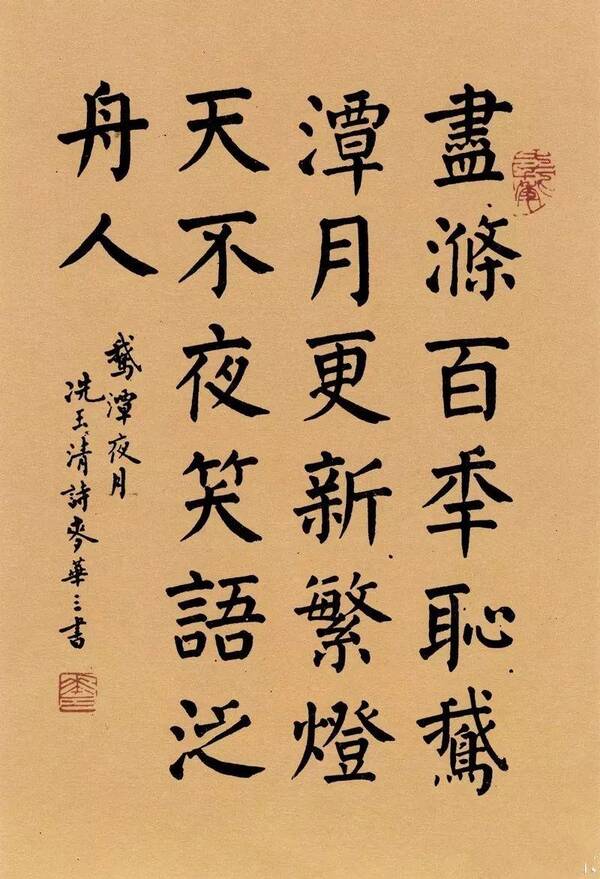 盡滌百秊恥鵞
潭月更新繁燈
天不夜笑語泛
舟人
鵞潭夜月
冼玉清詩麥華三書